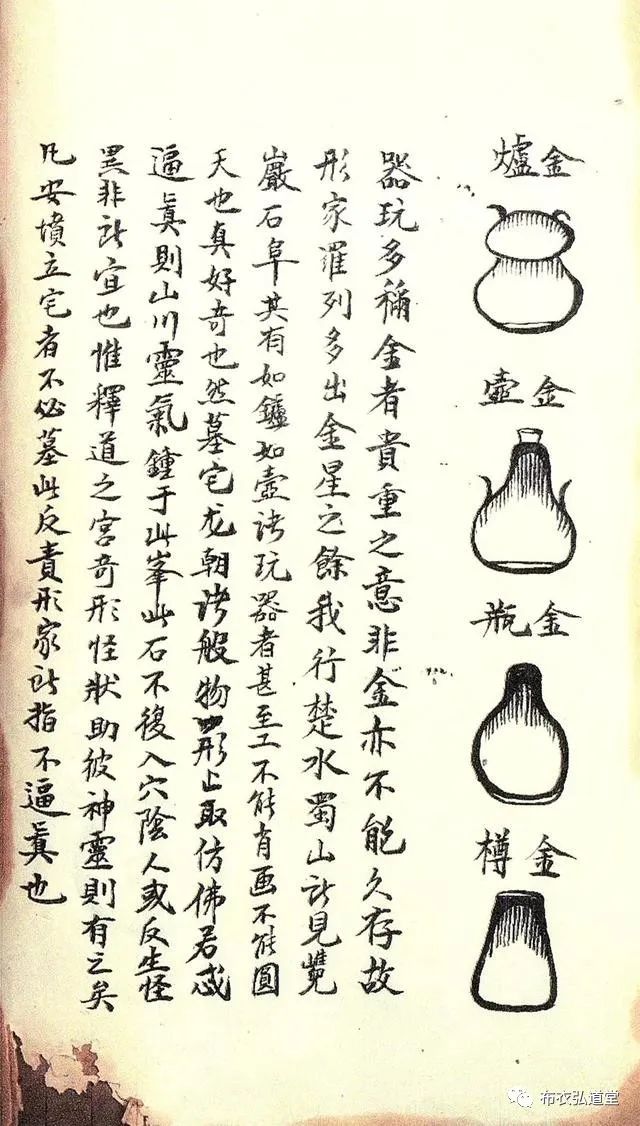 金爐
金壺
金瓶
金樽
器玩多稱金者貴重之意非金亦不能久存故
形家羅列多出金星之餘我行楚水蜀山所見
巖石阜其有如鑪如壺諸玩器者甚至工不能有画不能圓
天也真好奇也然墓宅龙朝諸般物形上取仿佛若
逼眞則山川靈氣鍾于此峯此石不復入穴陰人或反生怪
異非所宜也惟釋道之宮奇形怪狀助彼神靈則有之矣
凡安墳立宅者不必墓此反責形家所指不逼眞也
布衣弘道堂